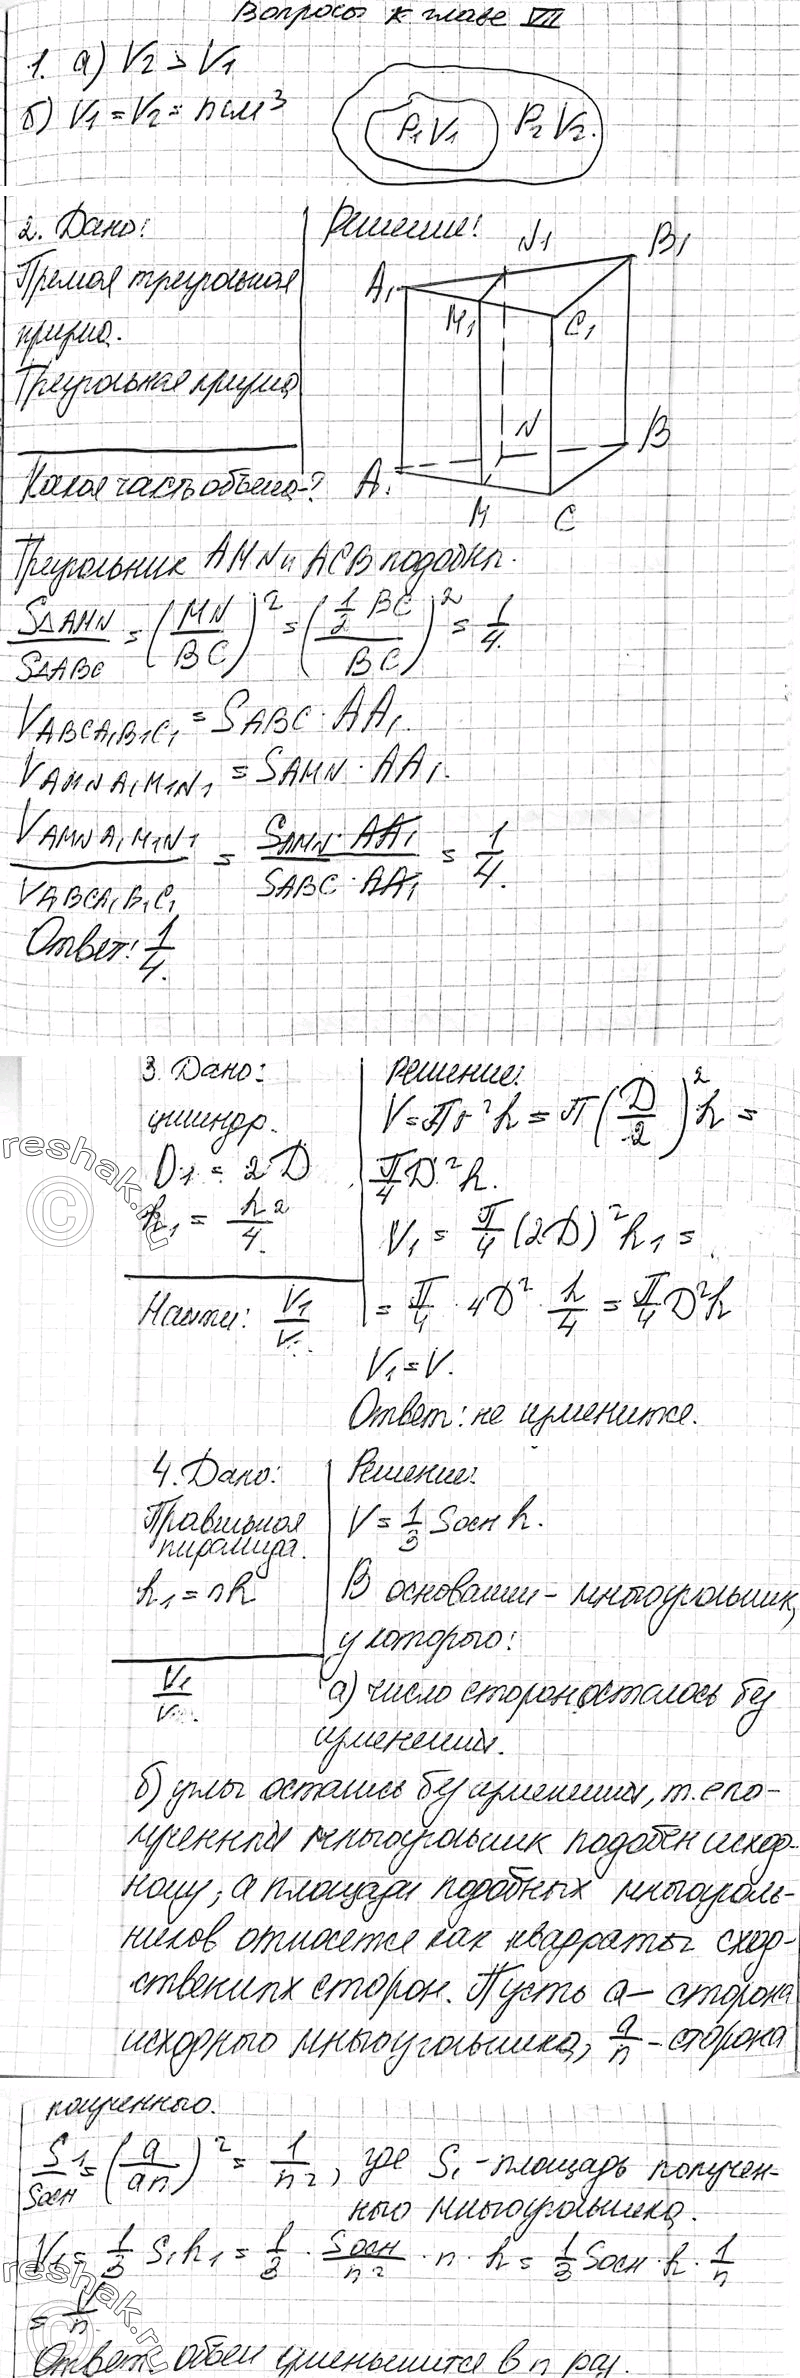 Вопросы к главе VII
1. а) V₂ > V₁
б) V₁ = V₂ = n см³
P₁ V₁ P₂ V₂.
2. Дано:
Прямая треугольная
призма.
Треугольная призма
Какая часть объема-?
Решение:
A₁ N₁ B₁
M₁ C₁
N B
A M C
Треугольник AMN и ACB подобны.
S△AMN/S△ABC = (MN/BC)² = (½BC/BC)² = 1/4.
V ABCA₁B₁C₁ = S ABC · AA₁.
V AMNA₁M₁N₁ = S AMN · AA₁.
V AMNA₁M₁N₁/V ABCA₁B₁C₁ = S AMN · AA₁/S ABC · AA₁ = 1/4.
Ответ: 1/4.
3. Дано:
цилиндр.
D₁ = 2D
h₁ = h²/4.
Найти: V₁/V.
Решение:
V = πr²h = π(D/2)²h =
π/4 D²h.
V₁ = π/4 (2D)² h₁ =
= π/4 · 4D² · h/4 = π/4 D²h
V₁ = V.
Ответ: не изменится.
4. Дано:
Правильная
пирамида.
h₁ = nh
V₁/V
Решение:
V = 1/3 Sосн h.
В основании - многоугольник,
у которого:
а) число сторон осталось без
изменений.
б) углы остались без изменения, т.е по-
лученный многоугольник подобен исход-
ному, а площади подобных многоуголь-
ников относятся как квадраты сход-
ственных сторон. Пусть a - сторона
исходного многоугольника, a/n - сторона
полученного.
S₁/Sосн = (a/an)² = 1/n², где S₁ - площадь получен-
ного многоугольника.
V₁ = 1/3 S₁h₁ = 1/3 · Sосн/n² · n · h = 1/3 Sосн · h · 1/n
= V/n
Ответ: объем уменьшится в n раз.
reshak.ru
©
reshak.ru